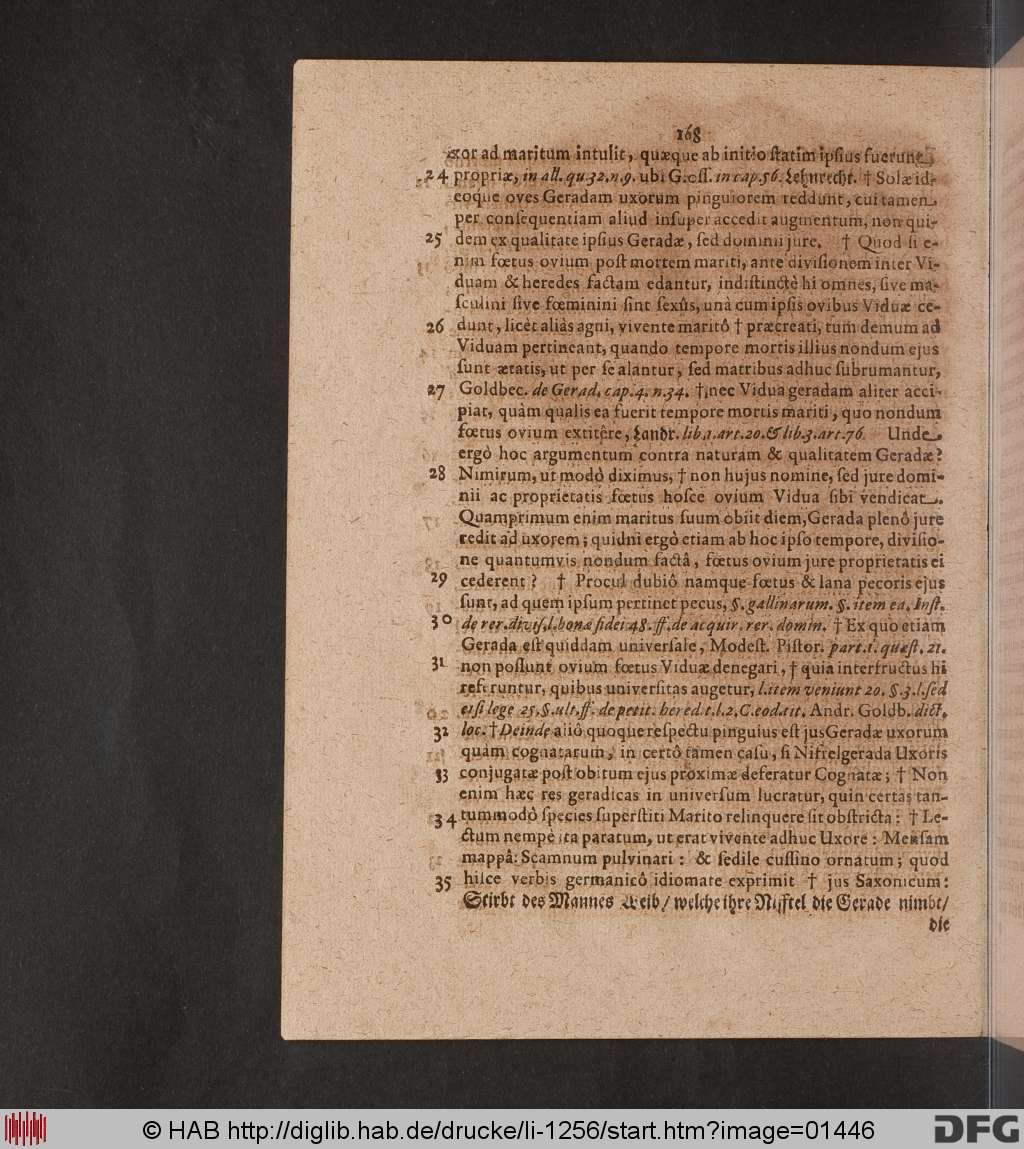 168
xor ad maritum intulit, quæque ab initio ſtatim ipſius fuerunt
24 propriæ, in all. qu. 32. n. 9. ubi Gloſſ. in cap. 56. Lehnrecht. † Solæ id-
eoque oves Geradam uxorum pinguiorem reddunt, cui tamen
per conſequentiam aliud inſuper accedit augmentum, non qui-
25 dem ex qualitate ipſius Geradæ, ſed dominii jure. † Quod ſi e-
nim fœtus ovium poſt mortem mariti, ante diviſionem inter Vi-
duam & heredes factam edantur, indiſtinctè hi omnes, ſive ma-
ſculini ſive fœminini ſint ſexûs, unà cum ipſis ovibus Viduæ ce-
26 dunt, licèt aliàs agni, vivente maritô † præcreati, tum demum ad
Viduam pertineant, quando tempore mortis illius nondum ejus
ſunt ætatis, ut per ſe alantur, ſed matribus adhuc ſubrumantur,
27 Goldbec. de Gerad. cap. 4. n. 34. † nec Vidua geradam aliter acci-
piat, quàm qualis ea fuerit tempore mortis mariti, quo nondum
fœtus ovium extitêre, Landr. lib. 1. art. 20. & lib. 3. art. 76. Unde
ergò hoc argumentum contra naturam & qualitatem Geradæ?
28 Nimirum, ut modò diximus, † non hujus nomine, ſed jure domi-
nii ac proprietatis fœtus hoſce ovium Vidua ſibi vendicat.
Quamprimum enim maritus ſuum obiit diem, Gerada plenô jure
redit ad uxorem; quidni ergò etiam ab hoc ipſo tempore, diviſio-
ne quantumvis nondum factâ, fœtus ovium jure proprietatis ei
29 cederent? † Procul dubiô namque fœtus & lana pecoris ejus
ſunt, ad quem ipſum pertinet pecus, §. gallinarum. §. item ea. Inſt.
30 de rer. diviſ. l. bonæ fidei 48. ff. de acquir. rer. domin. † Ex quo etiam
Gerada eſt quiddam univerſale, Modeſt. Piſtor. part. 1. quæſt. 21.
31 non poſſunt ovium fœtus Viduæ denegari, † quia inter fructus hi
referuntur, quibus univerſitas augetur, l. item veniunt 20. §. 3. l. ſed
etſi lege 25. §. ult. ff. de petit. hered. t. l. 2. C. eod. tit. Andr. Goldb. dict.
32 loc. † Deinde aliô quoque reſpectu pinguius eſt jus Geradæ uxorum
quàm cognatarum, in certô tamen caſu, ſi Niftelgerada Uxoris
33 conjugatæ poſt obitum ejus proximæ deferatur Cognatæ; † Non
enim hæc res geradicas in univerſum lucratur, quin certas tan-
34 tummodò ſpecies ſuperſtiti Marito relinquere ſit obſtricta: † Le-
ctum nempè ita paratum, ut erat vivente adhuc Uxore: Menſam
mappâ: Scamnum pulvinari: & ſedile cuſſino ornatum; quod
35 hiſce verbis germanicô idiomate exprimit † jus Saxonicum:
Stirbt des Mannes Weib/ welche ihre Nifftel die Gerade nimbt/
die
© HAB http://diglib.hab.de/drucke/li-1256/start.htm?image=01446
DFG